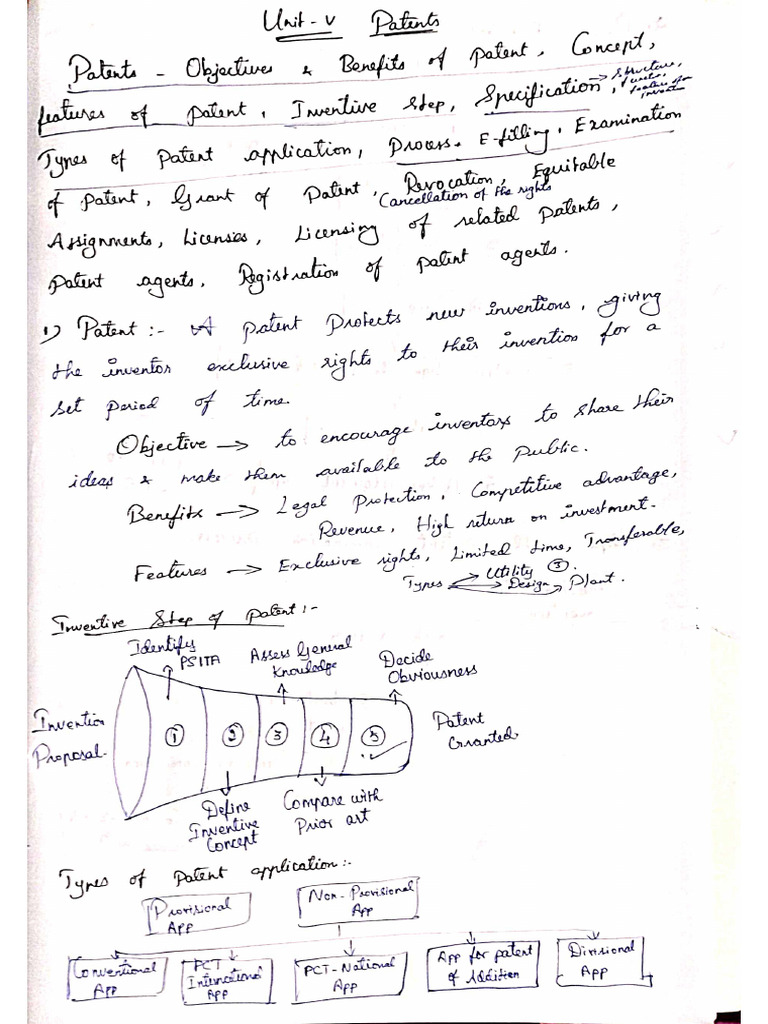 Unit-V Patents
Patents - Objectives & Benefits of patent, Concept,
features of patent, Inventive Step, Specification → Structure,
Types of Patent application, Process E-filling, Examination
of patent, Grant of Patent, Revocation, Equitable
Cancellation of the rights
Assignments, Licenses, Licensing of related patents,
patent agents, Registration of patent agents.
1) Patent :- A patent Protects new inventions, giving
the inventor exclusive rights to their invention for a
set period of time.
Objective → to encourage inventors to share their
ideas & make them available to the Public.
Benefits → Legal Protection, Competitive advantage,
Revenue, High return on investment.
Features → Exclusive rights, Limited time, Transferable,
Types → Utility ③.
→ Design → Plant.
Inventive Step of patent :-
Identify
PSITA
Assess General
Knowledge
Decide
Obviousness
Invention
Proposal
① ② ③ ④ ⑤
Patent
Granted
Define
Inventive
Concept
Compare with
Prior art
Types of Patent application :-
Provisional
App
Non-Provisional
App
Conventional
App
PCT
International
App
PCT-National
App
App for patent
of Addition
Divisional
App